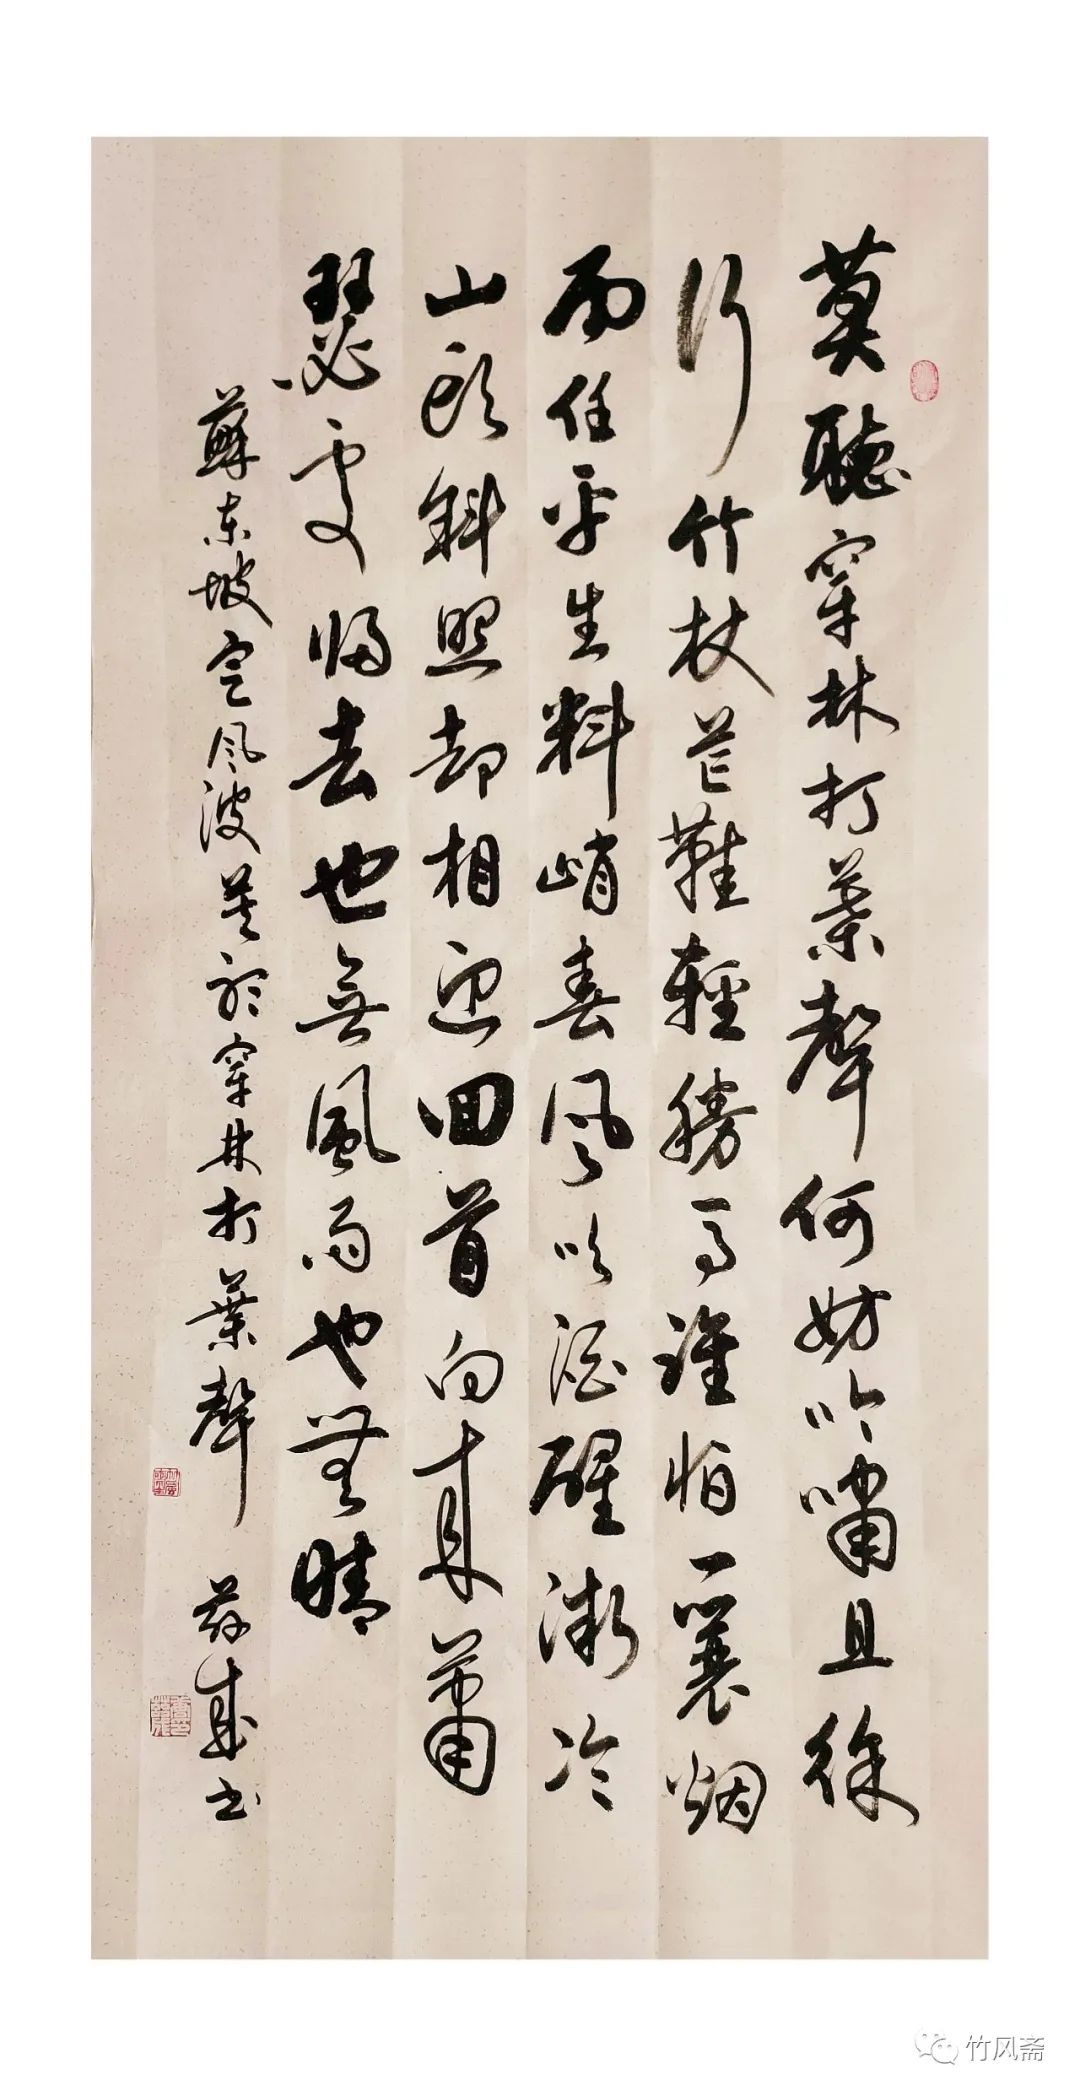 莫聽穿林打葉聲何妨吟嘯且徐
行竹杖芒鞋輕勝馬誰怕一蓑烟
雨任平生料峭春風吹酒醒微冷
山頭斜照却相迎回首向來蕭
瑟處歸去也無風雨也無晴
蘇東坡定風波莫聽穿林打葉聲 成书
竹风斋